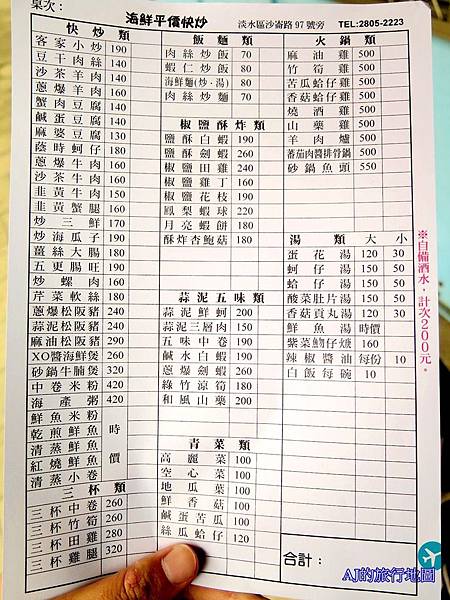 桌次：
海鮮平價快炒
淡水區沙崙路97號旁
TEL:2805-2223
快炒類
客家小炒 190
豆干肉絲 140
沙茶羊肉 140
蔥爆羊肉 160
蟹肉豆腐 140
鹹蛋豆腐 140
麻婆豆腐 130
蔭時蚵仔 180
蔥爆牛肉 160
沙茶牛肉 160
韭黃牛肉 150
韭黃蟹腿 160
炒三鮮 170
炒海瓜子 190
薑絲大腸 180
五更腸旺 190
炒螺肉 160
芹菜軟絲 180
蔥爆松阪豬 240
蒜泥松阪豬 240
麻油松阪豬 290
XO醬海鮮煲 260
砂鍋牛腩煲 320
中卷米粉 420
海產粥 420
鮮魚米粉
乾煎鮮魚
清蒸鮮魚
紅燒鮮魚
清蒸小卷
時價
三杯類
三杯中卷 260
三杯竹筍 260
三杯田雞 280
三杯雞腿 320
飯麵類
肉絲炒飯 70
蝦仁炒飯 80
海鮮麵(炒.湯) 80
肉絲炒麵 70
椒鹽酥炸類
鹽酥白蝦 190
鹽酥劍蝦 260
椒鹽田雞 240
椒鹽雞丁 160
椒鹽花枝 190
鳳梨蝦球 220
月亮蝦餅 180
酥炸杏鮑菇 180
蒜泥五味類
蒜泥鮮蚵 200
蒜泥三層肉 150
五味中卷 190
鹹水白蝦 190
蔥爆劍蝦 260
綠竹涼筍 180
和風山藥 200
青菜類
高麗菜 100
空心菜 100
地瓜葉 100
鮮香菇 100
鹹蛋苦瓜 100
絲瓜蛤仔 120
火鍋類
麻油雞 500
竹筍雞 500
苦瓜蛤仔雞 500
香菇蛤仔雞 500
燒酒雞 500
山藥雞 500
羊肉爐 500
蕃茄肉醬排骨鍋 500
砂鍋魚頭 550
湯類 大 小
蛋花湯 120 30
蚵仔湯 150 50
蛤仔湯 150 50
酸菜肚片湯 150 50
香菇貢丸湯 120 30
鮮魚湯 時價
紫菜魩仔焿 160
辣椒醬油 每份 10
白飯每碗 10
合計：
※自備酒水，計次200元。
AJ的旅行地圖